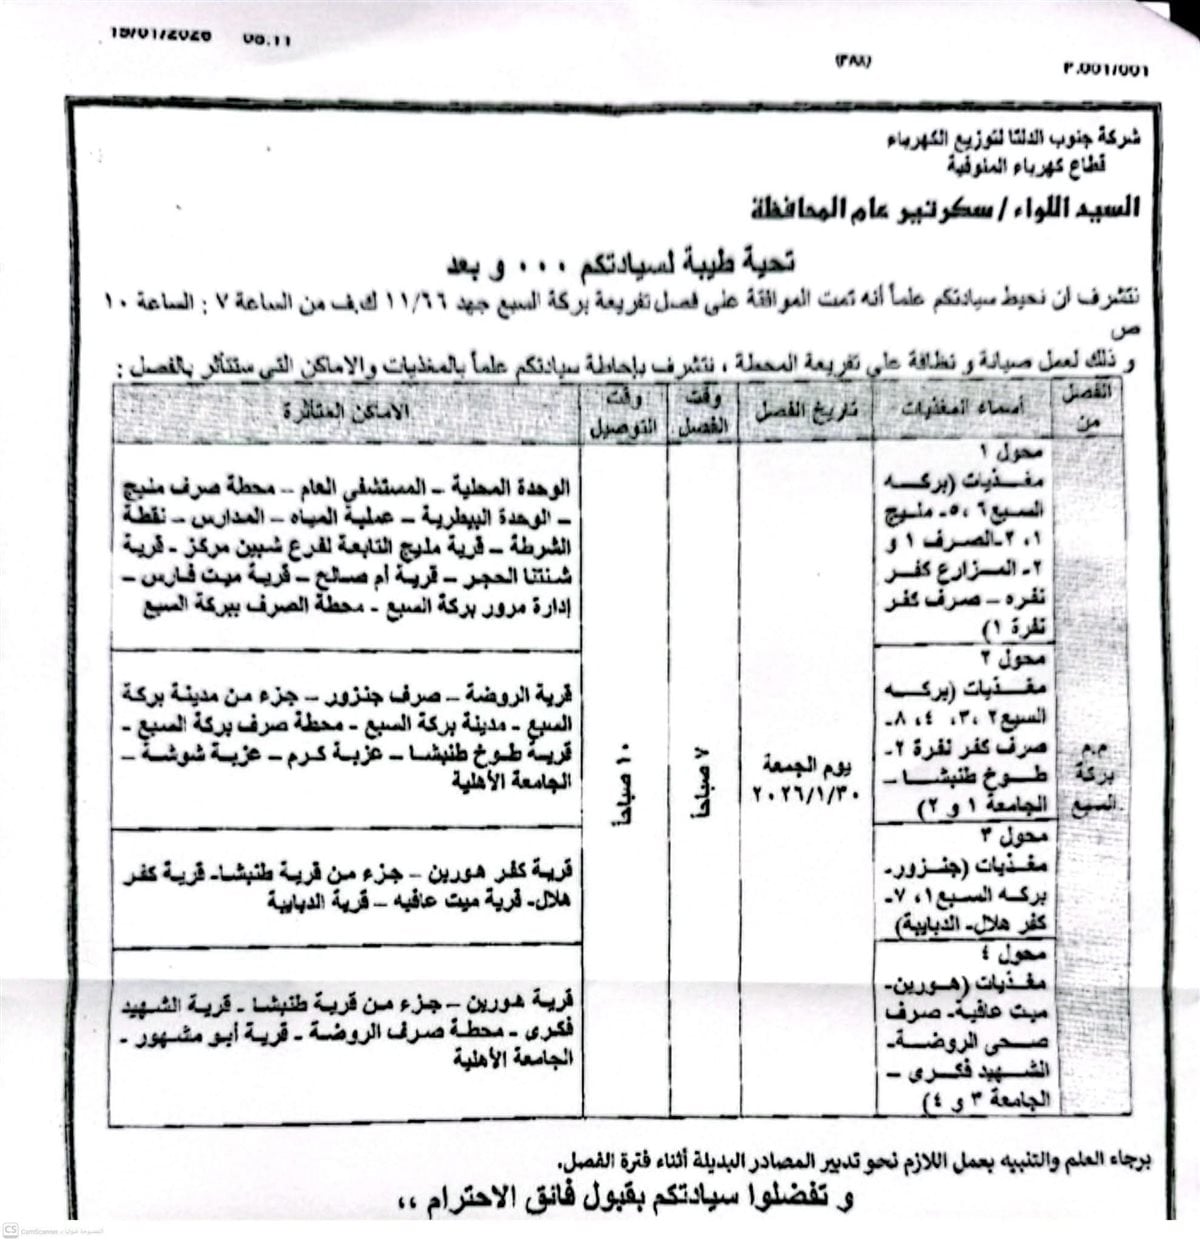 19/01/2026 08:11
(FAX)
P.001/001
شركة جنوب الدلتا لتوزيع الكهرباء
قطاع كهرباء المنوفية
السيد اللواء / سكرتير عام المحافظة
تحية طيبة لسيادتكم ٠٠٠ و بعد
نتشرف ان نحيط سيادتكم علماً أنه تمت الموافقة على فصل تفريعة بركة السبع جهد ١١/٦٦ ك.ف من الساعة ٧ : الساعة ١٠
ص
و ذلك لعمل صيانة و نظافة على تفريعة المحطة ، نتشرف بإحاطة سيادتكم علماً بالمغذيات والاماكن التي ستتأثر بالفصل :
الفصل من
أسماء المغذيات
تاريخ الفصل
وقت الفصل
وقت التوصيل
الاماكن المتأثرة
م.م
بركة
السبع
محول ١
مغذيات (بركه
السبع٦ ،٥ـ مليج
١، ٢ـالصرف ١ و
٢ـ المزارع كفر
نفره – صرف كفر
نفرة ١)
يوم الجمعة
٢٠٢٦/١/٣٠
٧ صباحاً
١٠ صباحاً
الوحدة المحلية – المستشفى العام – محطة صرف مليج
– الوحدة البيطرية – عملية المياه – المدارس – نقطة
الشرطة – قرية مليج التابعة لفرع شبين مركز ـ قرية
شنتنا الحجر – قرية أم صالح – قرية ميت فارس –
إدارة مرور بركة السبع ـ محطة الصرف ببركة السبع
محول ٢
مغذيات (بركه
السبع٢ ،٣، ٤، ٨ـ
صرف كفر نفرة ٢ـ
طوخ طنبشا –
الجامعة ١ و ٢)
قرية الروضة – صرف جنزور – جزء من مدينة بركة
السبع ـ مدينة بركة السبع ـ محطة صرف بركة السبع ـ
قرية طوخ طنبشا – عزبة كرم – عزبة شوشة –
الجامعة الأهلية
محول ٣
مغذيات (جنزورـ
بركه السبع١، ٧ـ
كفر هلال ـ الدبايبة)
قرية كفر هورين – جزء من قرية طنبشاـ قرية كفر
هلال ـ قرية ميت عافيه – قرية الدبايبة
محول ٤
مغذيات (هورين ـ
ميت عافية ـ صرف
صحى الروضة ـ
الشهيد فكرى –
الجامعة ٣ و ٤)
قرية هورين – جزء من قرية طنبشا ـ قرية الشهيد
فكرى ـ محطة صرف الروضة ـ قرية أبو مشهور ـ
الجامعة الأهلية
برجاء العلم والتنبيه بعمل اللازم نحو تدبير المصادر البديلة أثناء فترة الفصل.
و تفضلوا سيادتكم بقبول فائق الاحترام ،،
CS CamScanner